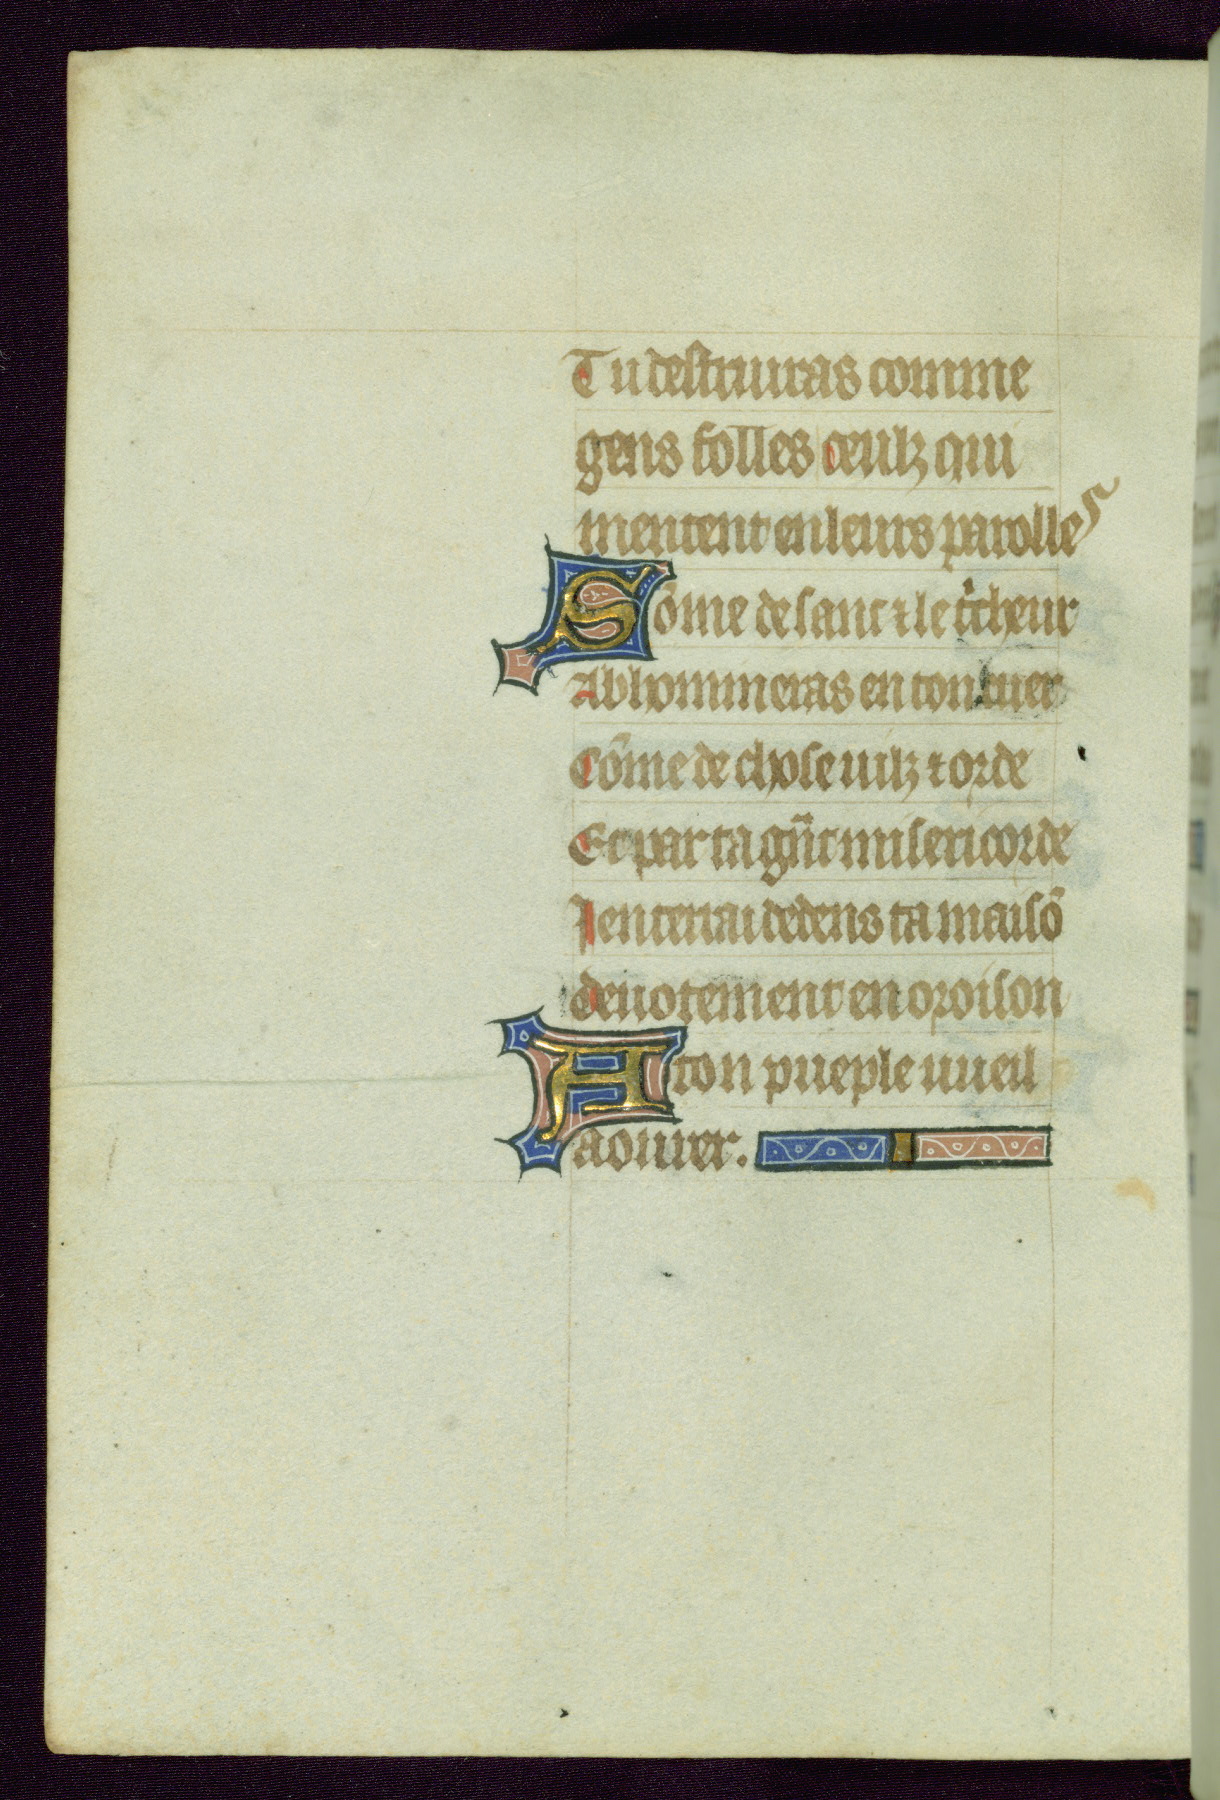 Tu destruiras comme
gens folles ceulz qui
mentent en leurs parolles
Sõme de sanc ⁊ le t̃cheur
Abhommeras en ton cuer
Cõme de chose uilz ⁊ orde
Et par ta gñt misericorde
Ienterrai dedens ta maisõ
deuotement en oroison
A ton pueple uueil
aouuer.